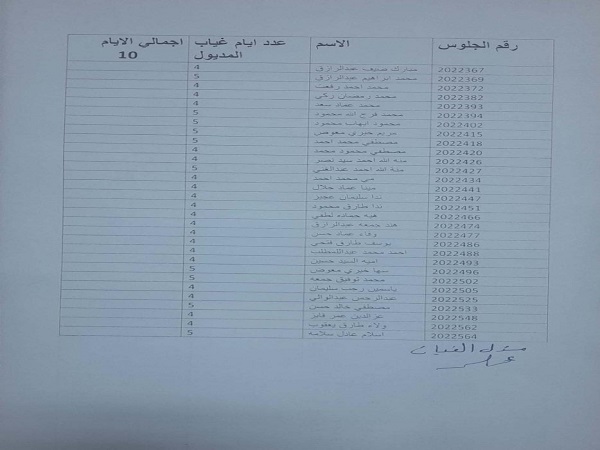 رقم الجلوس الاسم عدد ايام غياب المديول اجمالي الايام 10
2022367 مبارك ضيف عبدالرازق 4
2022369 محمد ابراهيم عبدالرازق 5
2022372 محمد احمد رفعت 4
2022382 محمد رمضان زكي 4
2022393 محمد عماد سعد 4
2022394 محمد فرج الله محمود 5
2022402 محمود ايهاب محمود 5
2022415 مريم خيري معوض 5
2022418 مصطفي محمد احمد 5
2022420 مصطفي محمود محمد 4
2022426 منه الله احمد سيد نصر 4
2022427 منة الله احمد عبدالغني 5
2022434 مي محمد احمد 4
2022441 مينا عماد جلال 4
2022447 ندا سليمان عجيز 4
2022451 ندا طارق محمود 4
2022466 هبه حماده لطفي 4
2022474 هند جمعه عبدالرازق 4
2022477 وفاء عماد حسن 4
2022486 يوسف طارق فتحي 4
2022488 احمد محمد عبداللمطلب 4
2022493 اميه السيد حسين 4
2022496 سها خيري معوض 5
2022502 محمد توفيق جمعه 5
2022505 ياسمين رجب سليمان 4
2022525 عبدالرحمن عبدالوالي 4
2022533 مصطفي خالد حسن 5
2022548 عزالدين عمر فايز 4
2022562 ولاء طارق يعقوب 4
2022564 اسلام عادل سلامه 5
مسئول الغياب